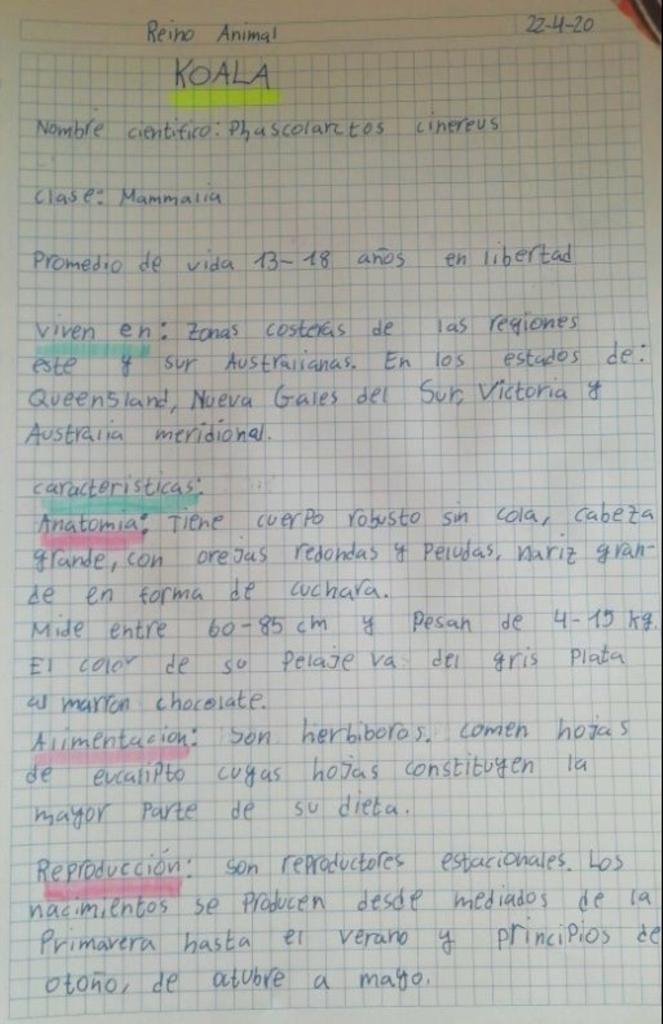 Reino Animal 22-4-20
KOALA
Nombre cientifico: Phascolarctos cinereus
Clase: Mammalia
Promedio de vida 13-18 años en libertad
Viven en: Zonas costeras de las regiones
este y sur Australianas. En los estados de:
Queensland, Nueva Gales del Sur, Victoria y
Australia meridional.
características:
Anatomia: Tiene cuerpo robusto sin cola, cabeza
grande, con orejas redondas y Peludas, nariz gran-
de en forma de cuchara.
Mide entre 60-85 cm y Pesan de 4-15 kg.
El color de su Pelaje va del gris Plata
al marron chocolate.
Alimentacion: Son herbiboros. comen hojas
de eucalipto cuyas hojas constituyen la
mayor Parte de su dieta.
Reproducción: Son reproductores estacionales. Los
nacimientos se Producen desde mediados de la
Primavera hasta el verano y principios de
otoño, de octubre a mayo.